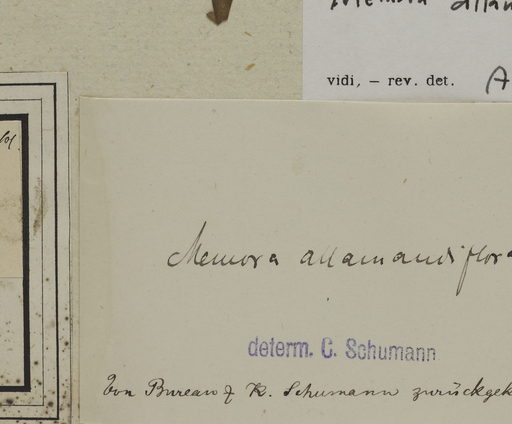 vidi, – rev. det. A
Memora allamandiflora
determ. C. Schumann
Von Bureau & K. Schumann zurückgek